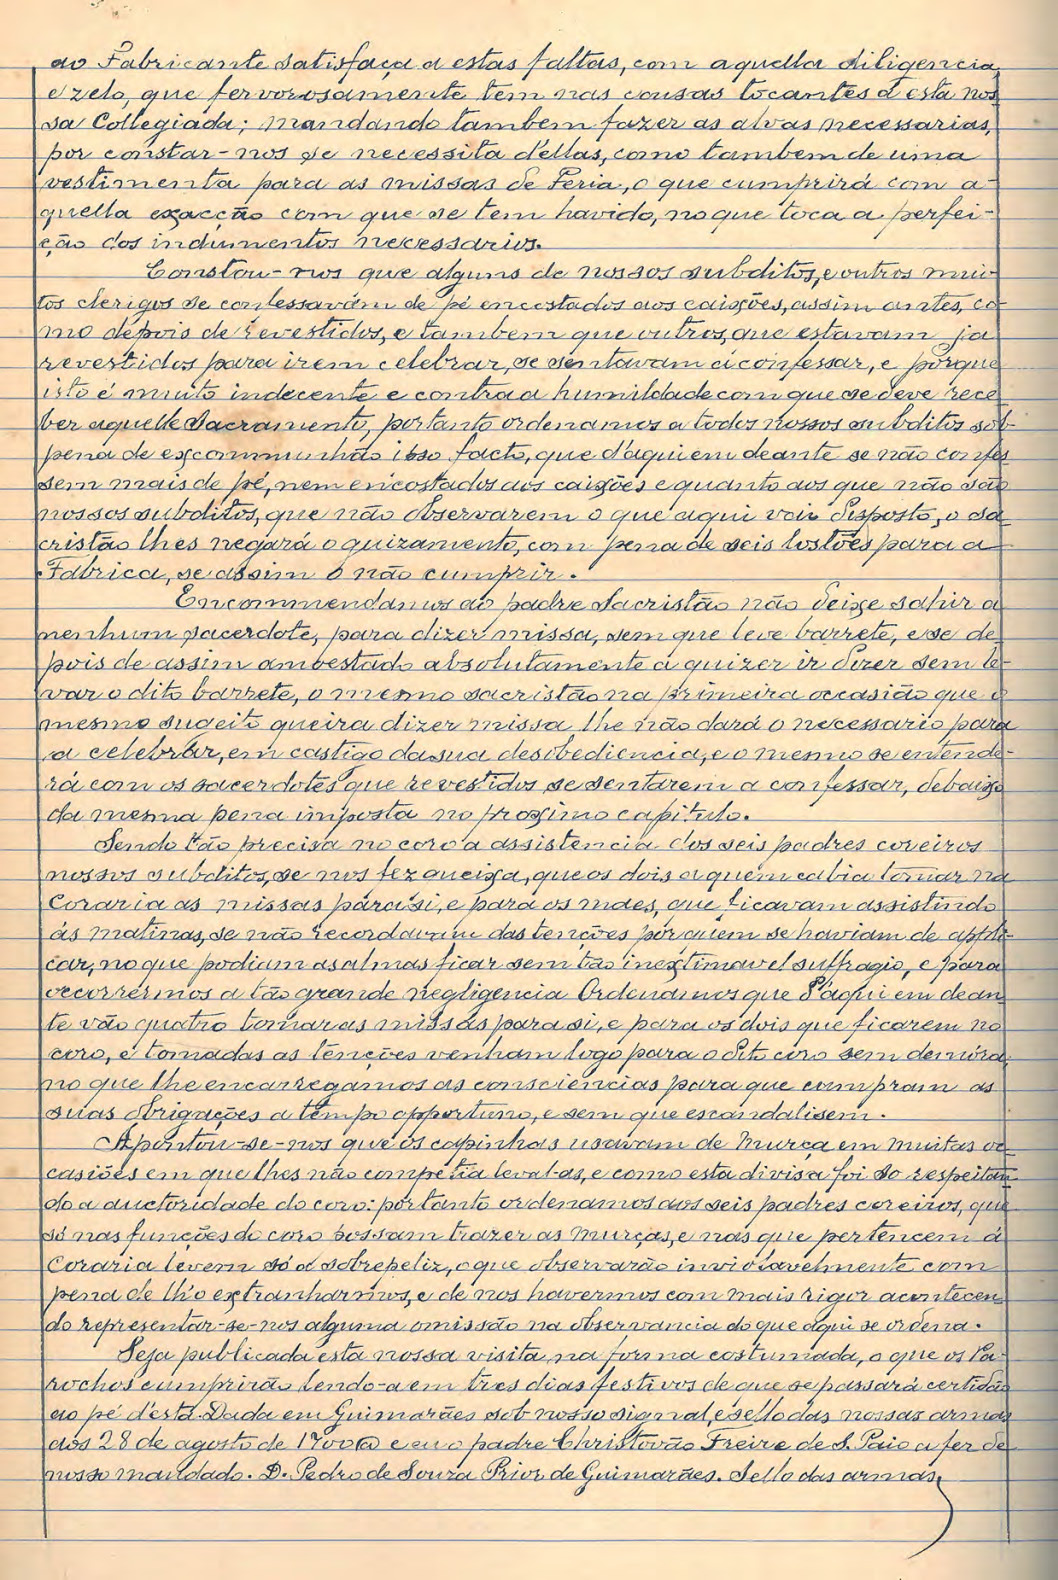 ao Fabricante satisfaça a estas faltas, com aquella diligencia
e zelo, que fervorosamente tem nas cousas tocantes á esta nos
sa Collegiada; mandando tambem fazer as alvas necessarias,
por constar-nos se necessita d'ellas, como tambem de uma
vestimenta para as missas de Feria, o que cumprirá com a-
quella exacção com que se tem havido, no que toca a perfei-
ção dos indumentos necessarios.
Constou-nos que alguns de nossos subditos, e outros mui-
tos clerigos se confessavam de pé encostados aos caixões, assim antes, co-
mo depois de revestidos, e tambem que outros, que estavam ja
revestidos para irem celebrar, se sentavam a confessar, e porque
isto é muito indecente e contra a humildade com que se deve rece
ber aquelle Sacramento, portanto ordenamos a todos nossos subditos sob
pena de excommunhão ibso facto, que d'aqui em deante se não confes
sem mais de pé, nem encostados aos caixões e quanto aos que não são
nossos subditos, que não observarem o que aqui vai disposto, o sa
cristão lhes negará o guizamento, com pena de seis tostões para a
Fabrica, se assim o não cumprir.
Encommendamos ao padre Sacristão não deixe sahir a
nenhum sacerdote, para dizer missa, sem que leve barrete, e se de
pois de assim amoestado absolutamente a quizer ir dizer sem le-
var o dito barrete, o mesmo sacristão na primeira occasião que o
mesmo sugeito queira dizer missa lhe não dará o necessario para
a celebrar, em castigo da sua desobediencia, e o mesmo se entende-
rá com os sacerdotes que revestidos se sentarem a confessar, debaixo
da mesma pena imposta no proximo capitulo.
Sendo tão precisa no coro a assistencia dos seis padres coreiros
nossos subditos, se nos fez queixa, que os dois a quem cabia tomar na
Coraria as missas para si, e para os mais, que ficavam assistindo
ás matinas, se não recordavam das tenções por quem se haviam de appli-
car, no que podiam as almas ficar sem tão inextimavel suffragio, e para
occorrermos a tão grande negligencia Ordenamos que d'aqui em dean
te vão quatro tomar as missas para si, e para os dois que ficarem no
coro, e tomadas as tenções venham logo para o dito coro sem demora,
no que lhe encarregamos as consciencias para que cumpram as
suas obrigações a tempo opportuno, e sem que escandalisem.
Apontou-se-nos que os capinhas usavam de Murça em muitas oc
casiões em que lhes não competia leval-as, e como esta divisa foi so respeitan
do a auctoridade do coro: portanto ordenamos aos seis padres coreiros, que
só nas funções do coro possam trazer as murças, e nas que pertencem á
Coraria levem só a sobrepeliz, o que observarão inviolavelmente com
pena de lh'o extranharmos, e de nos havermos com mais rigor acontecen
do representar-se-nos alguma omissão na observancia do que aqui se ordena.
Seja publicada esta nossa visita, na forma costumada, o que os Pa-
rochos cumprirão lendo-a em tres dias festivos de que se passará certidão
ao pé d'esta. Dada em Guimarães sob nosso signal, e sello das nossas armas
aos 28 de agosto de 1700@ e eu o padre Christovão Freire de S. Paio a fez de
nosso mandado. D. Pedro de Souza Prior de Guimarães. Sello das armas,